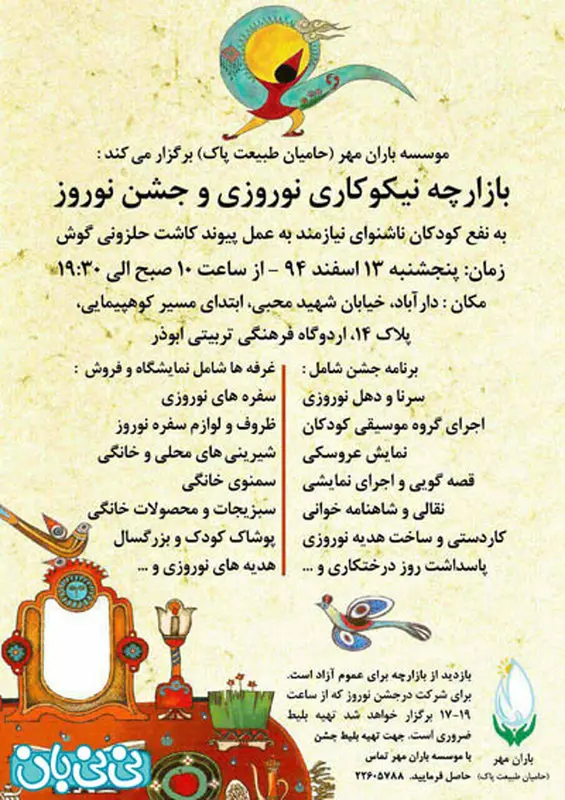 موسسه باران مهر (حامیان طبیعت پاک) برگزار می کند :
بازارچه نیکوکاری نوروزی و جشن نوروز
به نفع کودکان ناشنوای نیازمند به عمل پیوند کاشت حلزونی گوش
زمان: پنجشنبه ۱۳ اسفند ۹۴ - از ساعت ۱۰ صبح الی ۱۹:۳۰
مکان : دارآباد، خیابان شهید محبی، ابتدای مسیر کوهپیمایی،
پلاک ۱۴، اردوگاه فرهنگی تربیتی ابوذر
برنامه جشن شامل :
سرنا و دهل نوروزی
اجرای گروه موسیقی کودکان
نمایش عروسکی
قصه گویی و اجرای نمایشی
نقالی و شاهنامه خوانی
کاردستی و ساخت هدیه نوروزی
پاسداشت روز درختکاری و ...
غرفه ها شامل نمایشگاه و فروش :
سفره های نوروزی
ظروف و لوازم سفره نوروز
شیرینی های محلی و خانگی
سمنوی خانگی
سبزیجات و محصولات خانگی
پوشاک کودک و بزرگسال
هدیه های نوروزی و ...
بازدید از بازارچه برای عموم آزاد است.
برای شرکت درجشن نوروز که از ساعت
۱۷-۱۹ برگزار خواهد شد تهیه بلیط
ضروری است. جهت تهیه بلیط جشن
با موسسه باران مهر تماس
حاصل فرمایید. ۲۲۶۰۵۷۸۸
باران مهر
(حامیان طبیعت پاک)
نی نی بان